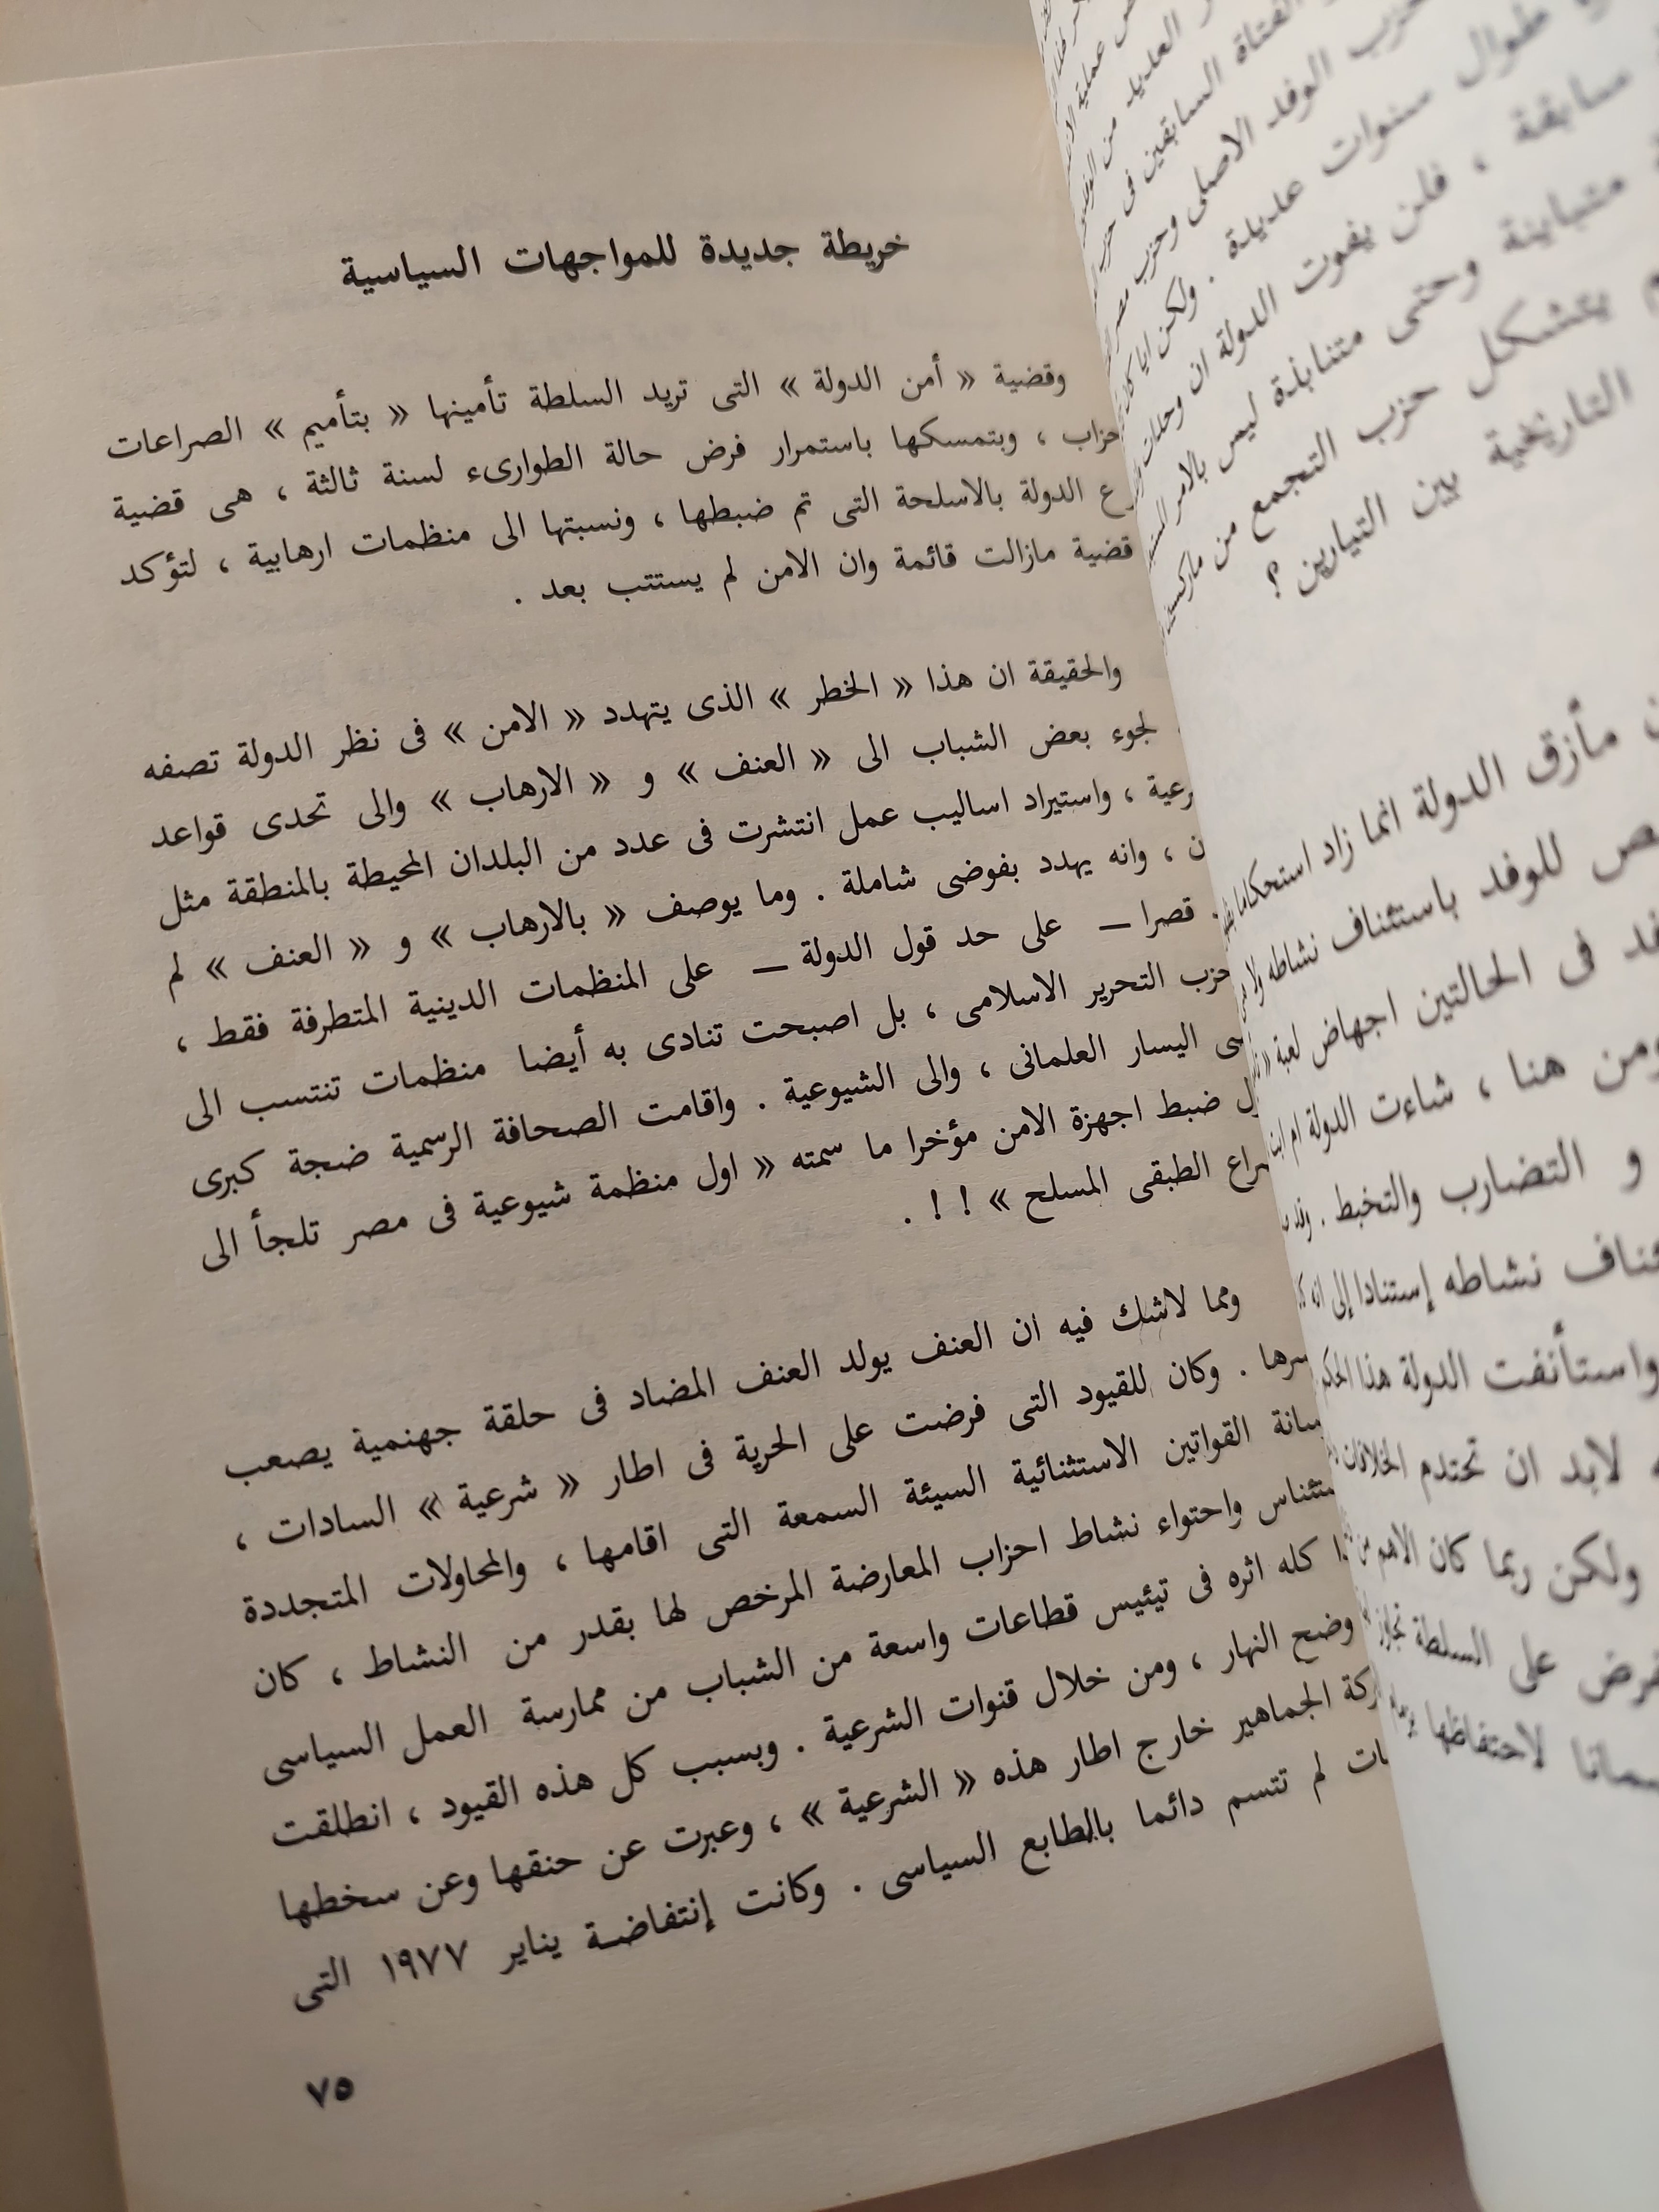 خريطة جديدة للمواجهات السياسية
وقضية « أمن الدولة » التى تريد السلطة تأمينها « بتأميم » الصراعات
، وبتمسكها باستمرار فرض حالة الطوارىء لسنة ثالثة ، هى قضية
الدولة بالاسلحة التى تم ضبطها ، ونسبتها الى منظمات ارهابية ، لتؤكد
قضية مازالت قائمة وان الامن لم يستتب بعد .
والحقيقة ان هذا « الخطر » الذى يتهدد « الامن » فى نظر الدولة تصفه
لجوء بعض الشباب الى « العنف » و « الارهاب » والى تحدى قواعد
، واستيراد اساليب عمل انتشرت فى عدد من البلدان المحيطة بالمنطقة مثل
، وانه يهدد بفوضى شاملة . وما يوصف « بالارهاب » و « العنف » لم
قصرا — على حد قول الدولة — على المنظمات الدينية المتطرفة فقط ،
حزب التحرير الاسلامى ، بل اصبحت تنادى به أيضا منظمات تنتسب الى
اليسار العلمانى ، والى الشيوعية . واقامت الصحافة الرسمية ضجة كبرى
ضبط اجهزة الامن مؤخرا ما سمته « اول منظمة شيوعية فى مصر تلجأ الى
الطبقى المسلح » ! ! .
ومما لاشك فيه ان العنف يولد العنف المضاد فى حلقة جهنمية يصعب
. وكان للقيود التى فرضت على الحرية فى اطار « شرعية » السادات ،
القواتين الاستثنائية السيئة السمعة التى اقامها ، والمحاولات المتجددة
واحتواء نشاط احزاب المعارضة المرخص لها بقدر من النشاط ، كان
كله اثره فى تيئيس قطاعات واسعة من الشباب من ممارسة العمل السياسى
وضح النهار ، ومن خلال قنوات الشرعية . وبسبب كل هذه القيود ، انطلقت
الجماهير خارج اطار هذه « الشرعية » ، وعبرت عن حنقها وعن سخطها
لم تتسم دائما بالطابع السياسى . وكانت إنتفاضة يناير ١٩٧٧ التى
٧٥
العديد من
الفتاة السابقين فى
حزب الوفد الاصلى وحزب
طوال سنوات عديدة . ولكن ايا
سابقة ، فلن يفوت الدولة ان
متباينة وحتى متنابذة ليس بالامر
يتشكل حزب التجمع من
التاريخية بين التيارين ؟
مأزق الدولة انما زاد استحكاما
للوفد باستئناف نشاطه
فى الحالتين اجهاض لعبة
ومن هنا ، شاءت الدولة ام
و التضارب والتخبط .
نشاطه إستنادا إلى انه
واستأنفت الدولة هذا
لابد ان تحتدم
ولكن ربما كان الاهم من
على السلطة
لاحتفاظها